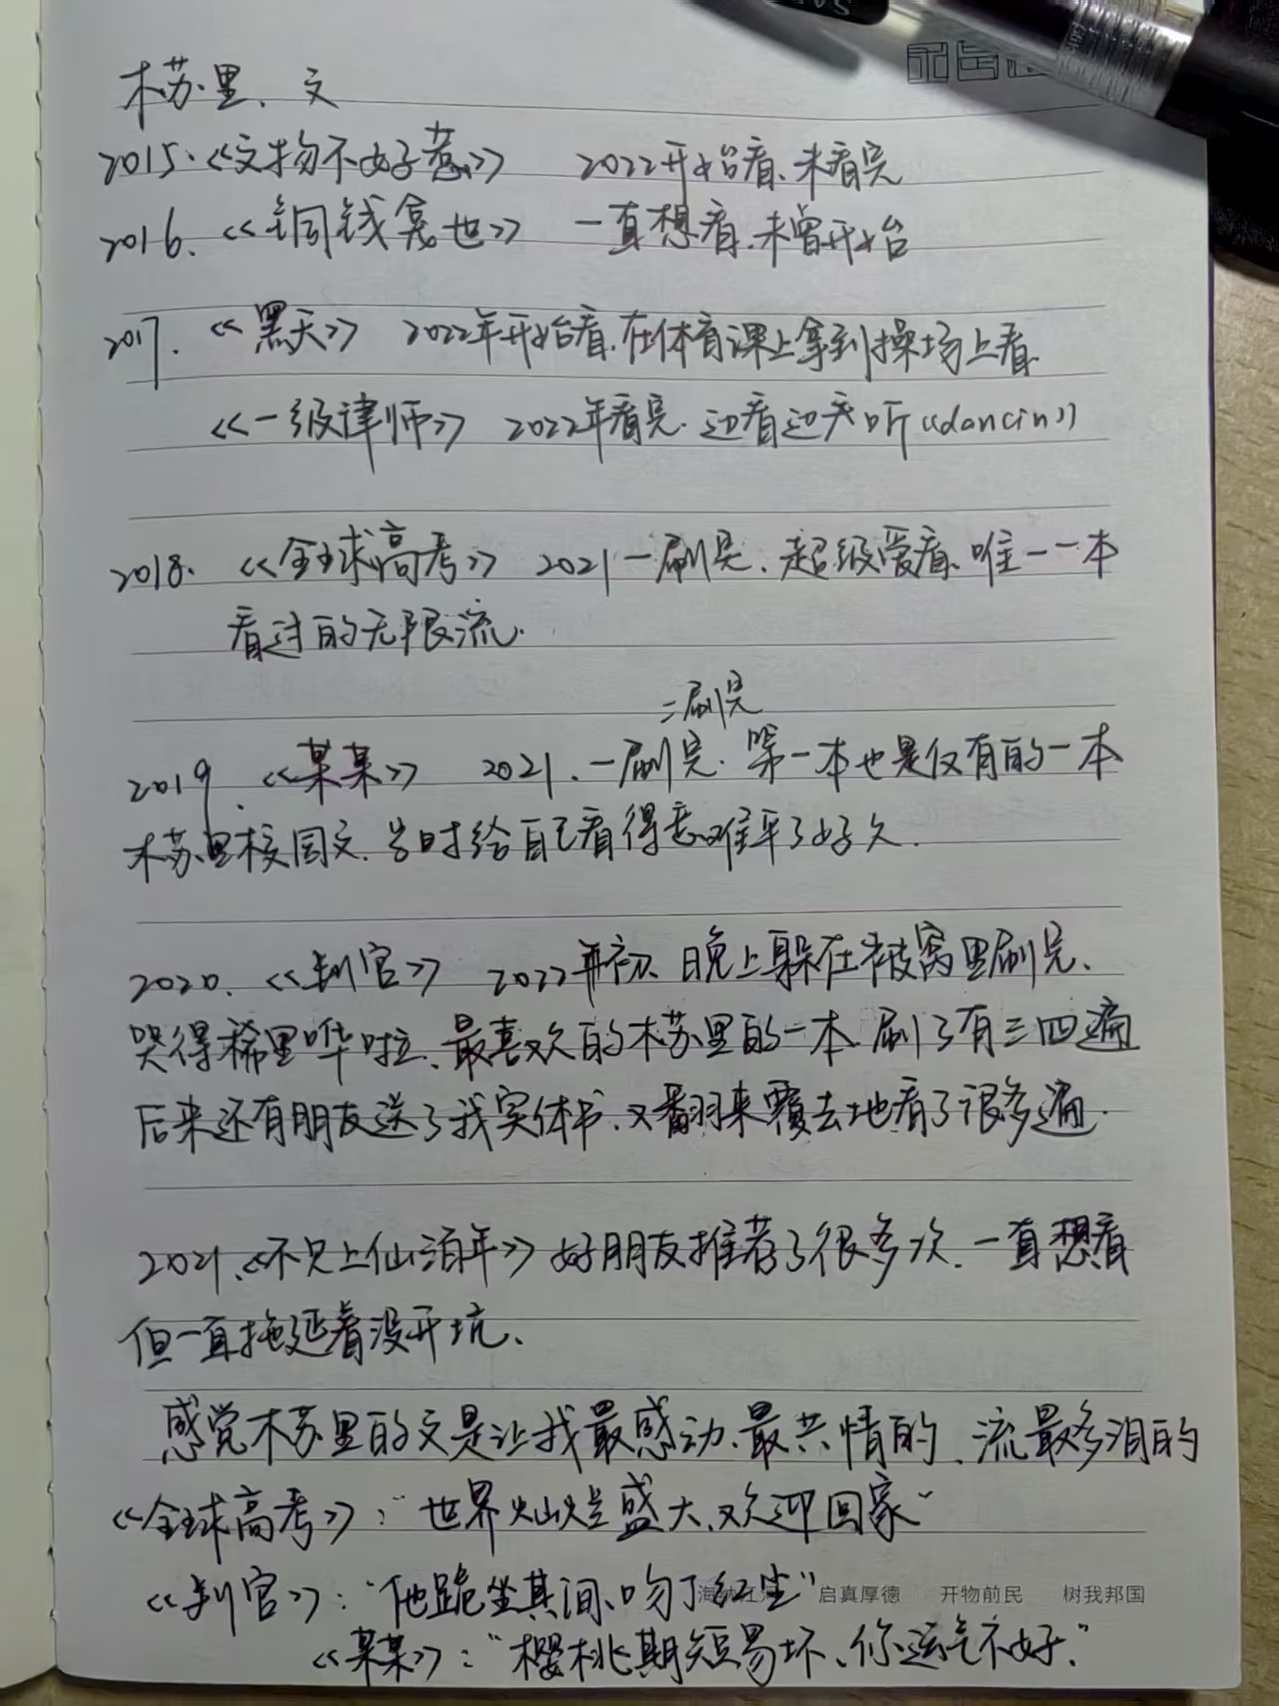 木苏里、文
2015.《文物不好惹》 2022开始看、未看完
2016.《铜钱龛世》 一直想看、未曾开始
2017.《黑天》 2022年开始看.在体育课上拿到操场上看
《一级律师》 2022年看完.边看边天听《dancin》
2018.《全球高考》 2021一刷完、超级爱看、唯一一本
看过的无限流.
二刷完
2019.《某某》 2021.一刷完.第一本也是仅有的一本
木苏里校园文.当时给自己看得意难平了好久.
2020.《判官》 2022年初、晚上躲在被窝里刷完、
哭得稀里哗啦、最喜欢的木苏里的一本.刷了有三四遍
后来还有朋友送了我实体书.又翻来覆去地看了很多遍.
2021.《不见上仙三百年》好朋友推荐了很多次.一直想看
但一直拖延着没开坑、
感觉木苏里的文是让我最感动、最共情的、流最多泪的
《全球高考》:"世界灿烂盛大、欢迎回家"
《判官》:"他跪坐其间、吻了红尘"
启真厚德 开物前民 树我邦国
《某某》:"樱桃期短易坏、你运气不好."